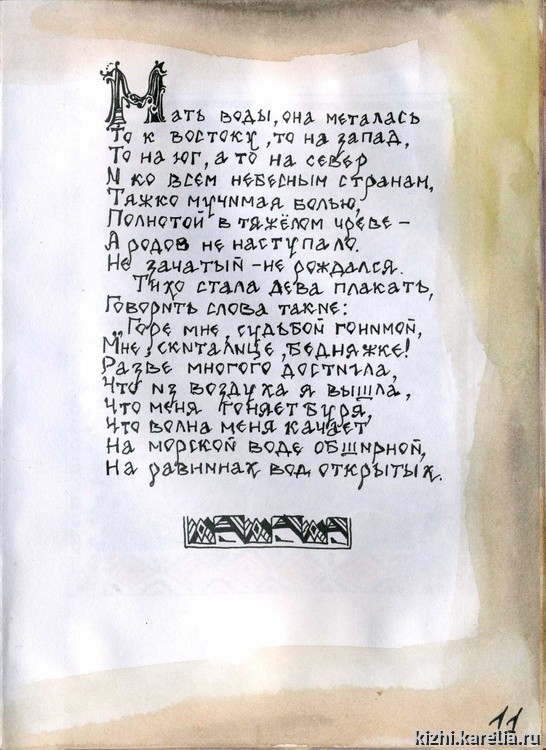 Мать воды, она металась
То к востоку, то на запад,
То на юг, а то на север
И ко всем небесным странам,
Тяжко мучимая болью,
Полнотой в тяжёлом чреве –
А родов не наступало.
Не зачатый – не рождался.
Тихо стала дева плакать,
Говорить слова такие:
„Горе мне, судьбой гонимой,
Мне, скиталице, бедняжке!
Разве многого достигла,
Что из воздуха я вышла,
Что меня гоняет буря,
Что волна меня качает
На морской воде обширной,
На равнинах вод открытых.
11
kizhi.karelia.ru